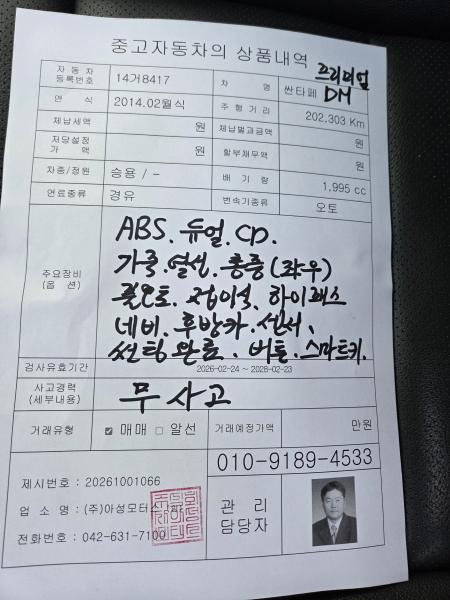 중고자동차의 상품내역
자동차 등록번호 14거8417 차 명 싼타페 DM 프리미엄
연 식 2014.02월식 주행거리 202,303 Km
체납세액 원 체납벌과금액 원
저당설정 가 액 원 할부채무액 원
차종/정원 승용 / - 배 기 량 1,995 cc
연료종류 경유 변속기종류 오토
주요장비 (옵 션)
ABS. 듀얼. CD.
가죽. 열선. 통풍 (좌/우)
풀오토. 접이식, 하이패스
네비. 후방카. 센서,
썬팅완료. 버튼. 스마트키.
검사유효기간 2026-02-24 ~ 2028-02-23
사고경력 (세부내용) 무사고
거래유형 ☑ 매매 □ 알선 거래예정가액 만원
010-9189-4533
제시번호 : 20261001066
업 소 명 : (주)아성모터스
전화번호 : 042-631-7100
관 리
담당자